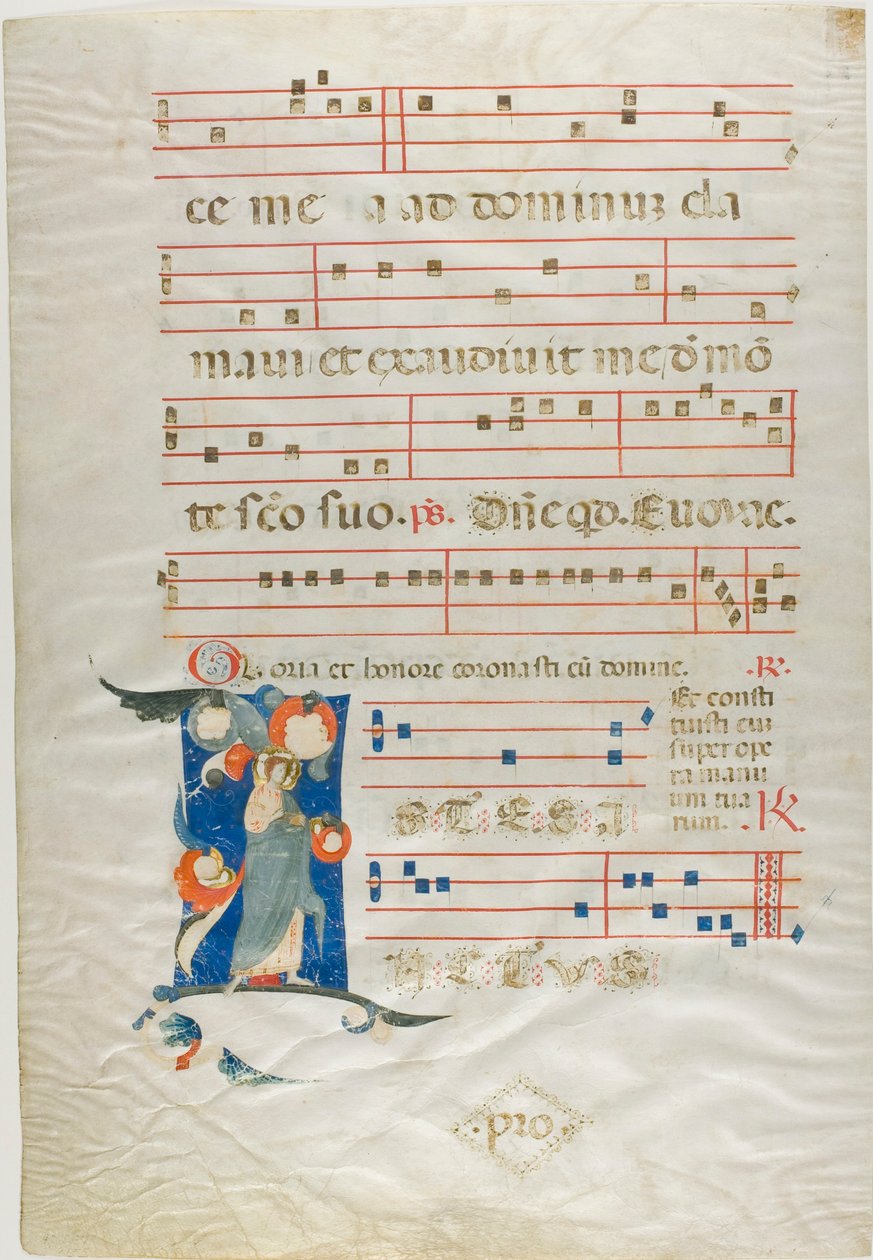 ce me a ad dominuʒ cla
maui et exaudiuit me d̄ mō
te sc̄o suo. ps̄. Dn̄e qd. Euovae.
Gloria et honore coronasti eū domine. .R.
Et consti
tuisti eu3
super ope
ra manu
um tua
rum. .R.
S. T. E. S. I
H. C. T. V. S
.pro.